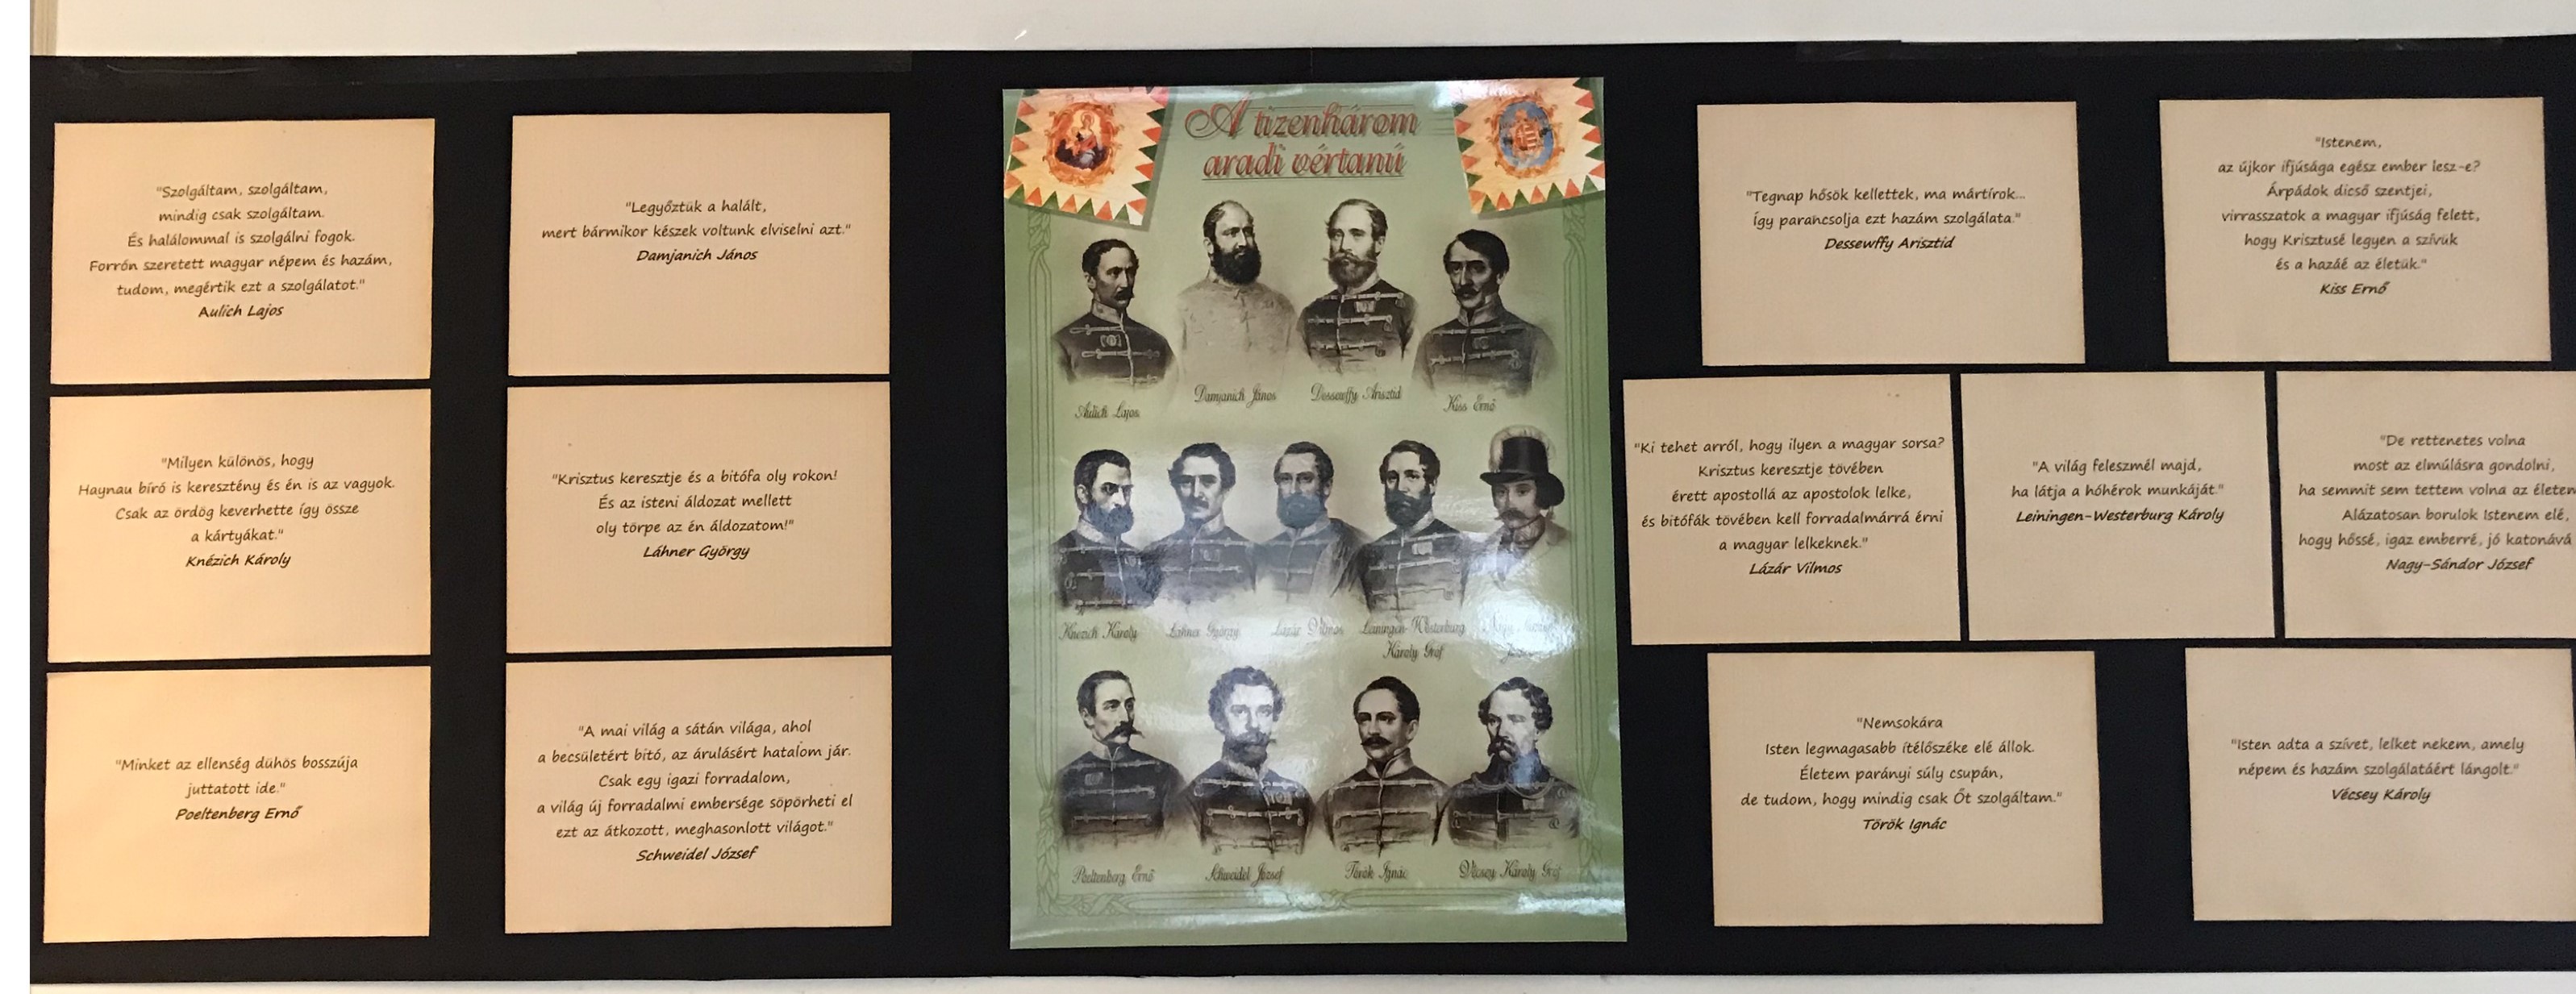 "Szolgáltam, szolgáltam,
mindig csak szolgáltam.
És halálommal is szolgálni fogok.
Forrón szeretett magyar népem és hazám,
tudom, megértik ezt a szolgálatot."
Aulich Lajos
"Legyőztük a halált,
mert bármikor készek voltunk elviselni azt."
Damjanich János
"Milyen különös, hogy
Haynau bíró is keresztény és én is az vagyok.
Csak az ördög keverhette így össze
a kártyákat."
Knézich Károly
"Krisztus keresztje és a bitófa oly rokon!
És az isteni áldozat mellett
oly törpe az én áldozatom!"
Láhner György
"Minket az ellenség dühös bosszúja
juttatott ide."
Poeltenberg Ernő
"A mai világ a sátán világa, ahol
a becsületért bitó, az árulásért hatalom jár.
Csak egy igazi forradalom,
a világ új forradalmi embersége söpörheti el
ezt az átkozott, meghasonlott világot."
Schweidel József
A tizenhárom
aradi vértanú
Aulich Lajos
Damjanich János
Dessewffy Arisztid
Kiss Ernő
Knezich Károly
Lahner György
Lázár Vilmos
Leiningen-Westerburg
Károly Gróf
Poeltenberg Ernő
Schweidel József
Török Ignác
Vécsey Károly Gróf
"Tegnap hősök kellettek, ma mártírok...
így parancsolja ezt hazám szolgálata."
Dessewffy Arisztid
"Istenem,
az újkor ifjúsága egész ember lesz-e?
Árpádok dicső szentjei,
virrasszatok a magyar ifjúság felett,
hogy Krisztusé legyen a szívük
és a hazáé az életük."
Kiss Ernő
"Ki tehet arról, hogy ilyen a magyar sorsa?
Krisztus keresztje tövében
érett apostollá az apostolok lelke,
és bitófák tövében kell forradalmárrá érni
a magyar lelkeknek."
Lázár Vilmos
"A világ feleszmél majd,
ha látja a hóhérok munkáját."
Leiningen-Westerburg Károly
"De rettenetes volna
most az elmúlásra gondolni,
ha semmit sem tettem volna az életem
Alázatosan borulok Istenem elé,
hogy hőssé, igaz emberré, jó katonává
Nagy-Sándor József
"Nemsokára
Isten legmagasabb ítélőszéke elé állok.
Életem parányi súly csupán,
de tudom, hogy mindig csak Őt szolgáltam."
Török Ignác
"Isten adta a szívet, lelket nekem, amely
népem és hazám szolgálatáért lángolt."
Vécsey Károly